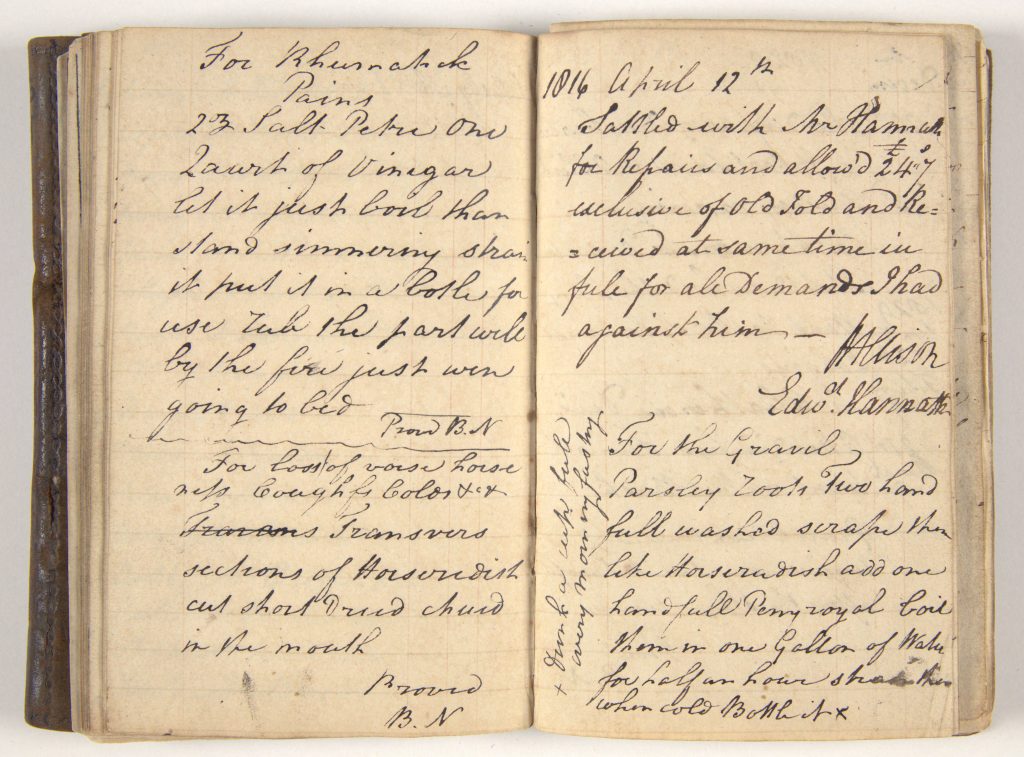 For Rhumatick
Pains
2℥ Salt Petre One
Quart of Vinegar
let it just boil than
stand simmering strain
it put it in a botle for
use rub the part well
by the fire just wen
going to bed
Provd B.N
For loss of voise horse
ness Coughfs Colds &c &
Transvers
sections of Horseradish
cut short Dried chued
in the mouth
Proved
B. N
1816 April 12th
Sattled with Mr Hannath
for Repairs and allow'd 24
exclusive of Old Fold and Re=
=ceived at same time in
full for all Demands I had
against him —
Allison
Edwd. Hannath
For the Gravil
Parsley roots Two hand
full washed scrape them
like Horseradish add one
handfull Penyroyal boil
them in one Gallon of Water
for half an hour strain them
when cold Bottle it +
+ Drink a cupe full
every morning fasting